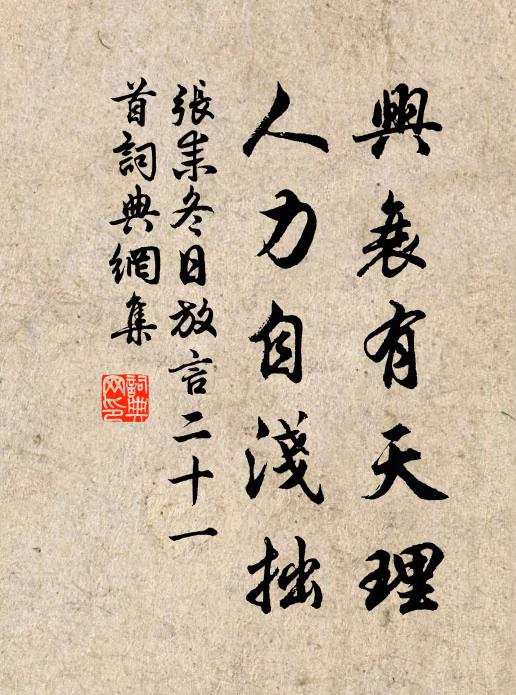 興衰有天理
人力自淺拙
張耒冬日放言二十一
首詞典網集
詞典網印